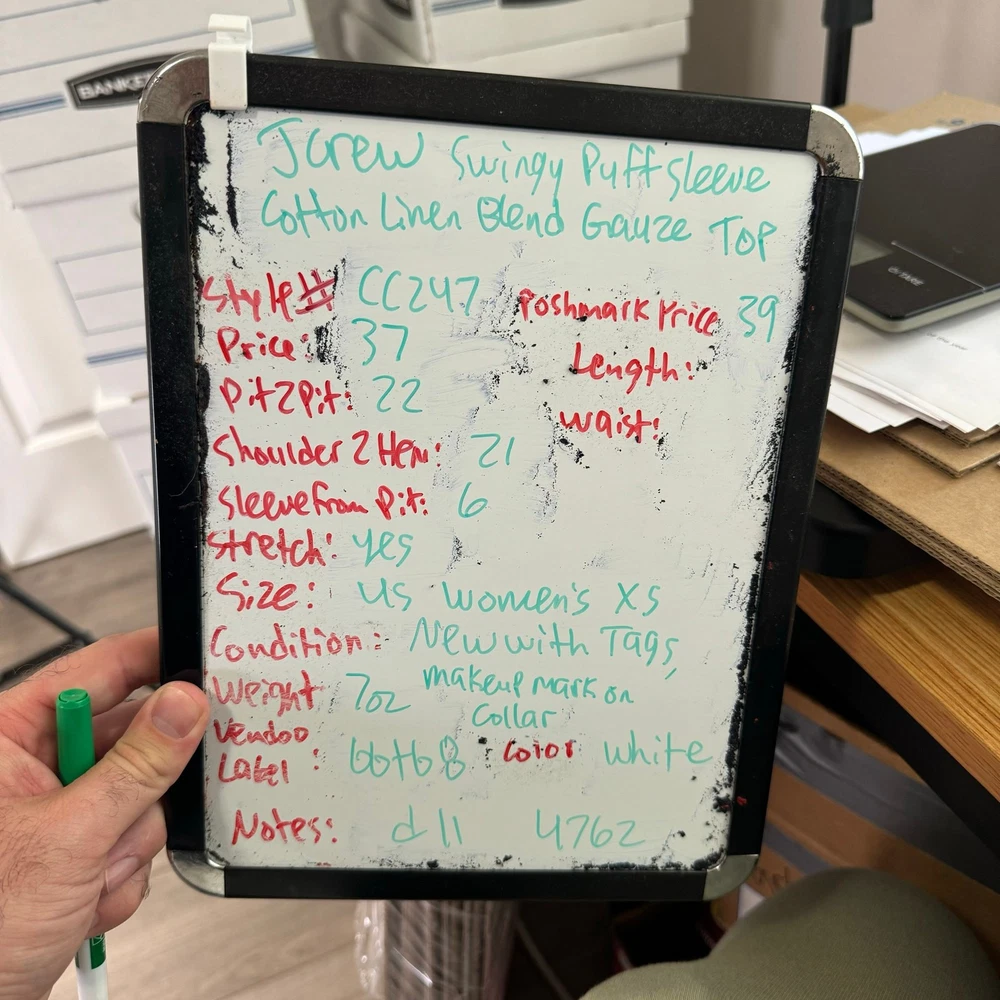 JCrew Swingy Puff Sleeve
Cotton Linen Blend Gauze Top
Style# CC247 Poshmark Price 39
Price: 37
Length:
Pit2Pit: 22
Waist:
Shoulder 2 Hem: 21
Sleeve from Pit: 6
Stretch: yes
Size: US Women's XS
Condition: New with Tags,
makeup mark on
collar
Weight 7oz
Vendoo
Label: bbtb8 Color white
Notes: d11 4762